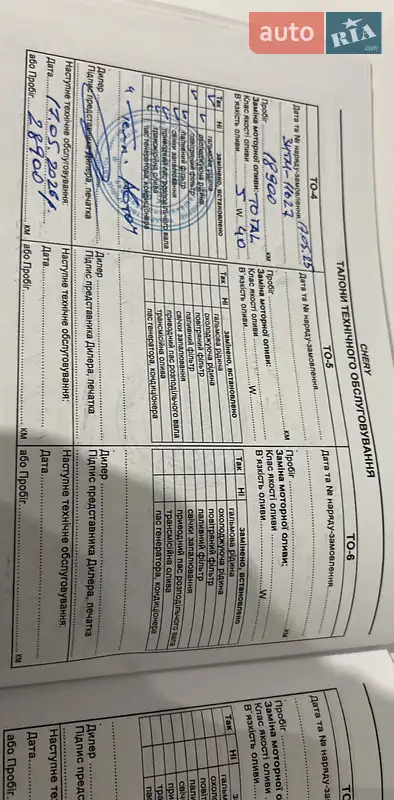 auto RIA.com
CHERY
ТАЛОНИ ТЕХНІЧНОГО ОБСЛУГОВУВАННЯ
ТО-4
Дата та № наряду-замовлення: 17.05.25
Пробіг 18900 км
Заміна моторної оливи: TOTAL
Клас якості оливи
В'язкість оливи 5 W 40
Так Ні замінено, встановлено
гальмова рідина
охолоджуюча рідина
повітряний фільтр
паливний фільтр
свічки запалювання
привідний пас розподільчого вала
трансмісійна олива
пас генератора, кондиціонера
Дилер
Підпис представника Дилера, печатка
Наступне технічне обслуговування:
Дата 17.05.2026
або Пробіг 28900 км
ТО-5
Дата та № наряду-замовлення
Пробіг км
Заміна моторної оливи:
Клас якості оливи
В'язкість оливи W
Так Ні замінено, встановлено
гальмова рідина
охолоджуюча рідина
повітряний фільтр
паливний фільтр
свічки запалювання
привідний пас розподільчого вала
трансмісійна олива
пас генератора, кондиціонера
Дилер
Підпис представника Дилера, печатка
Наступне технічне обслуговування:
Дата
або Пробіг км
ТО-6
Дата та № наряду-замовлення
Пробіг км
Заміна моторної оливи:
Клас якості оливи
В'язкість оливи W
Так Ні замінено, встановлено
гальмова рідина
охолоджуюча рідина
повітряний фільтр
паливний фільтр
свічки запалювання
привідний пас розподільчого вала
трансмісійна олива
пас генератора, кондиціонера
Дилер
Підпис представника Дилера, печатка
Наступне технічне обслуговування:
Дата
або Пробіг км
Дата та № наряду-зам
Пробіг
Заміна моторної ол
Клас якості оливи
В'язкість оливи
Так Ні
Дилер
Підпис предс
Наступне те
Дата
або Пробіг